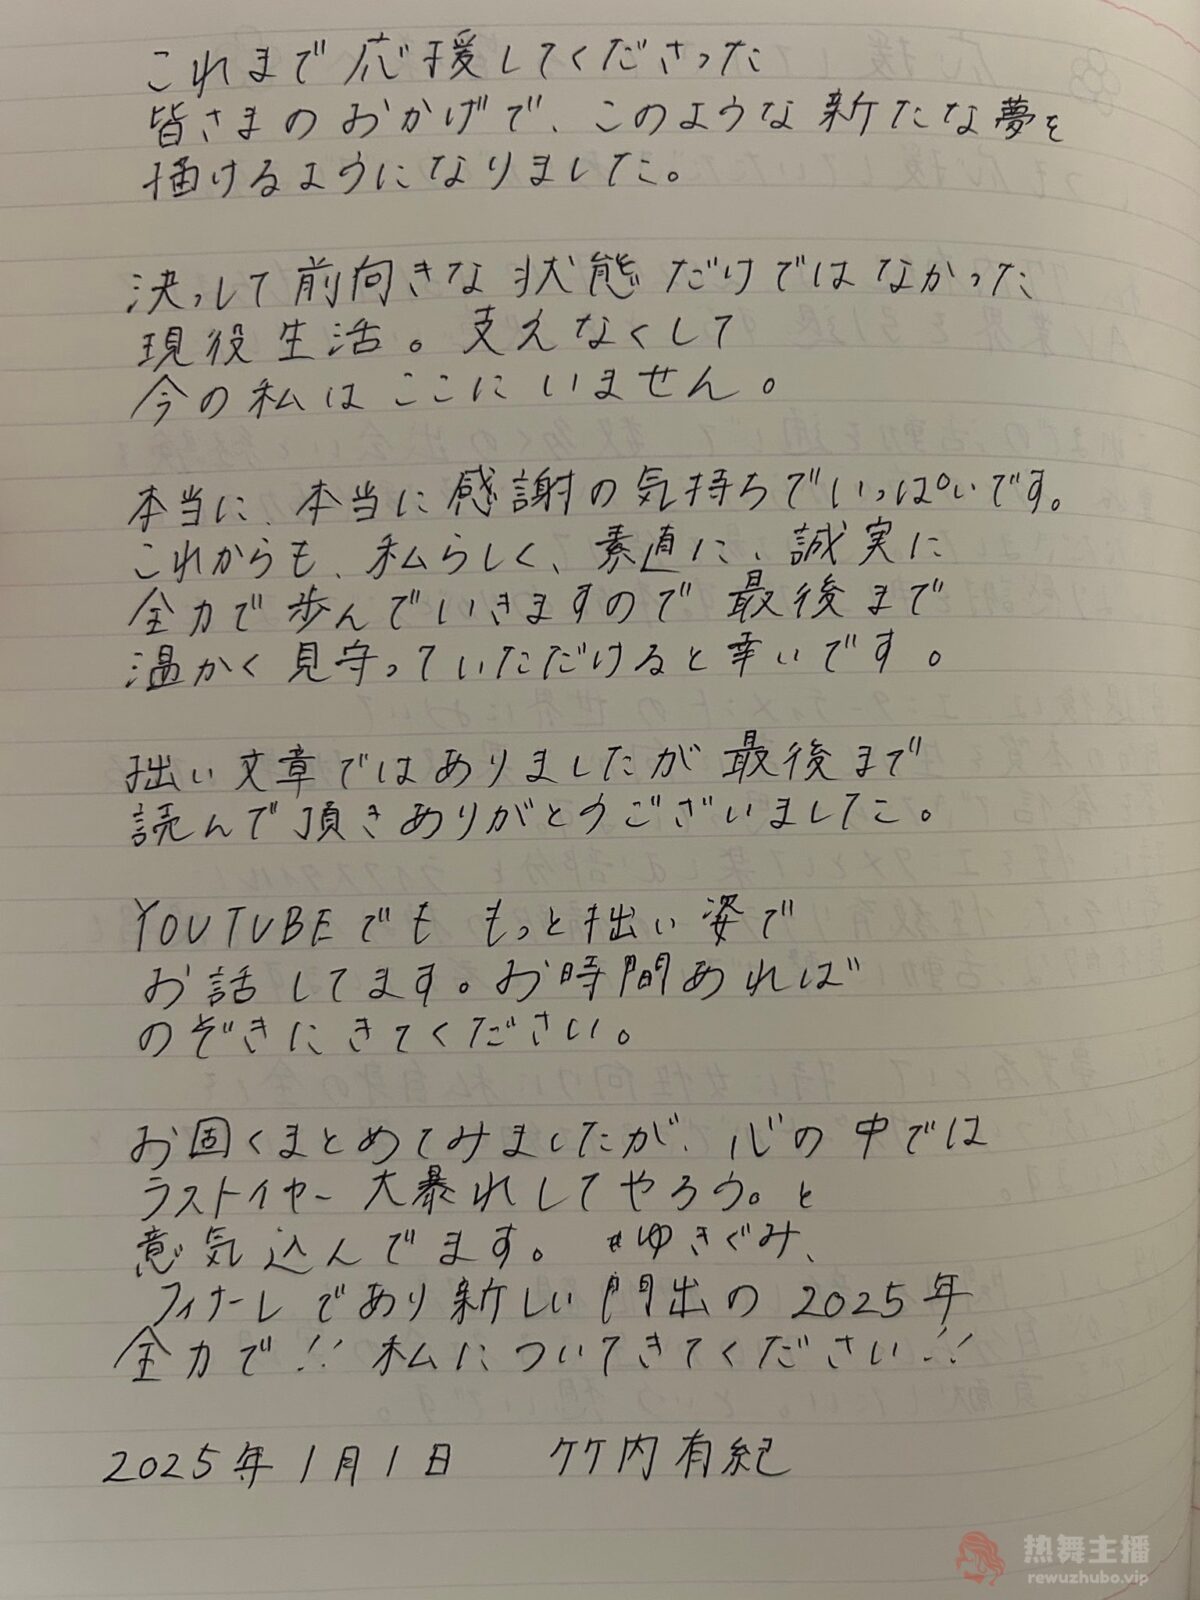 これまで応援してくださった
皆さまのおかげで、このような新たな夢を
描けるようになりました。
決っして前向きな状態だけではなかった
現役生活。支えなくして
今の私はここにいません。
本当に、本当に感謝の気持ちでいっぱいです。
これからも、私らしく、素直に、誠実に
全力で歩んでいきますので最後まで
温かく見守っていただけると幸いです。
拙い文章ではありましたが最後まで
読んで頂きありがとうございました。
YOUTUBEでも もっと拙い姿で
お話してます。お時間あれば
のぞきにきてください。
お固くまとめてみましたが、心の中では
ラストイヤー大暴れしてやろう。と
意気込んでます。#ゆきぐみ、
フィナーレであり新しい門出の2025年
全力で!! 私についてきてください!!
2025年1月1日 竹内有紀
热舞主播
rewuzhubo.vip